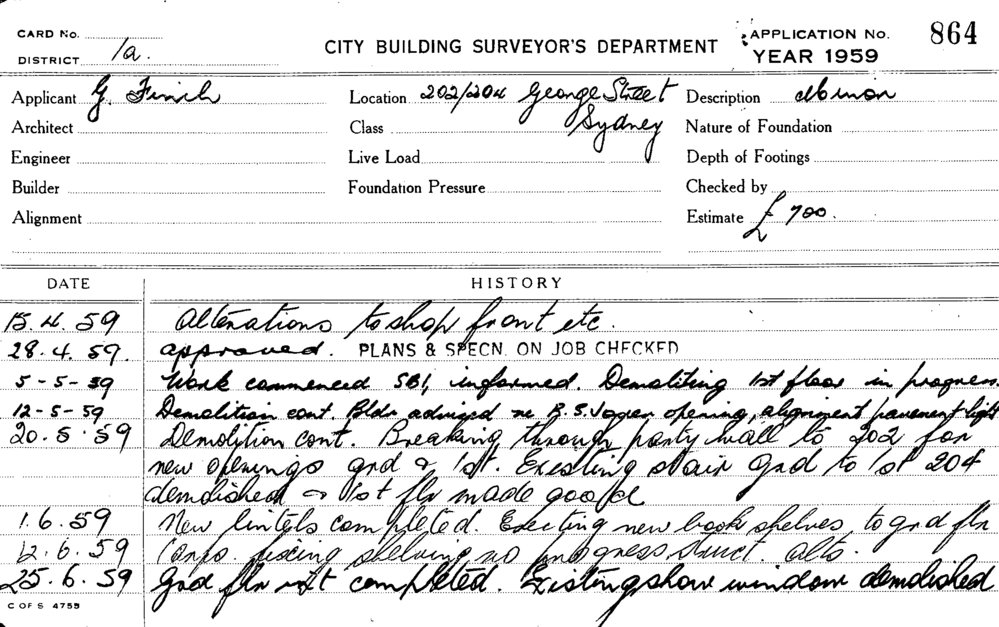 CARD No.
DISTRICT 1a.
CITY BUILDING SURVEYOR'S DEPARTMENT
APPLICATION No. 864
YEAR 1959
Applicant G. Finch
Location 202/204 George Street
Sydney
Description Minor
Architect
Class
Nature of Foundation
Engineer
Live Load
Depth of Footings
Builder
Foundation Pressure
Checked by
Alignment
Estimate £ 700.
DATE HISTORY
15.4.59 Alterations to shop front etc.
28.4.59. approved. PLANS & SPECN. ON JOB CHECKED
5-5-59 Work commenced SBI, informed. Demoliting 1st floor in progress.
12-5-59 Demolition cont. Bldr advised re opening, alignment pavement light
20.5.59 Demolition cont. Breaking through party wall to 202 for
new openings grd & 1st. Existing stair grd to 1st 204
demolished & 1st flr made good
1.6.59 New lintels completed. Erecting new book shelves, to grd flr
12.6.59 Carps. fixing shelving no progress, struct. alts.
25.6.59 Grd flr completed. Existing show window demolished
C OF S 4755